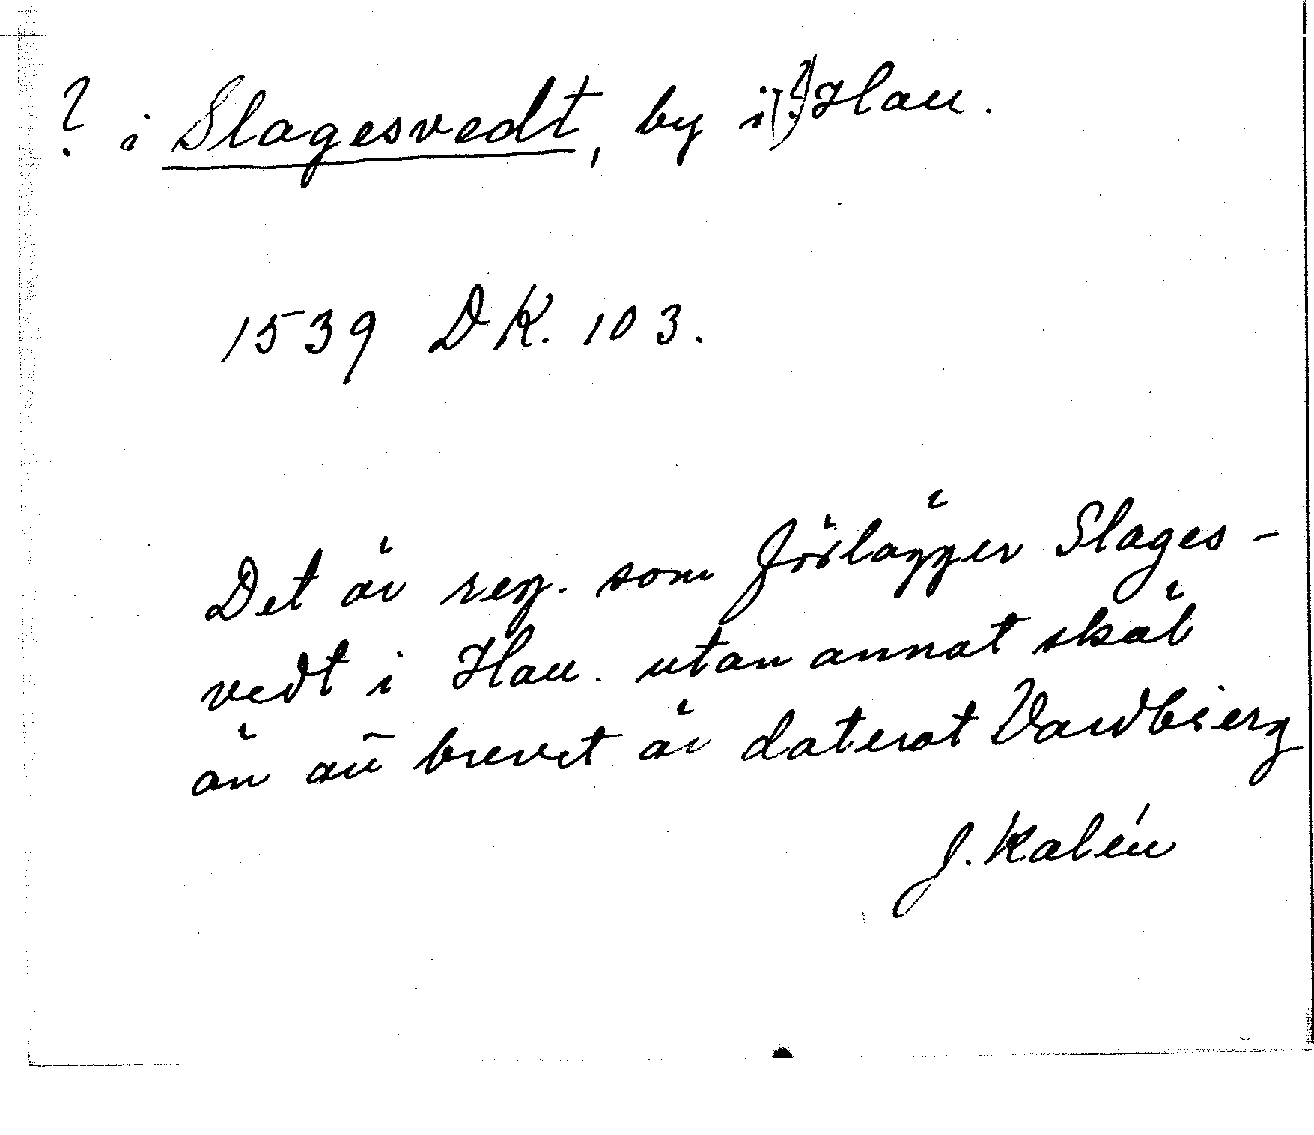 ? i Slagesvedt, by i (?) Hall.
1539 DK. 103.
Det är reg. som förlägger Slages-
vedt i Hall. utan annat skäl
än att brevet är daterat Vardbierg
J. Kalén